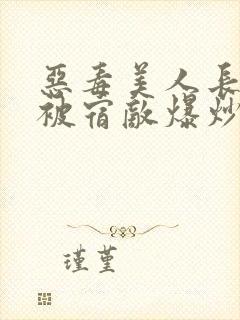 惡毒美人長
被宿敵爆炒
瑾堇